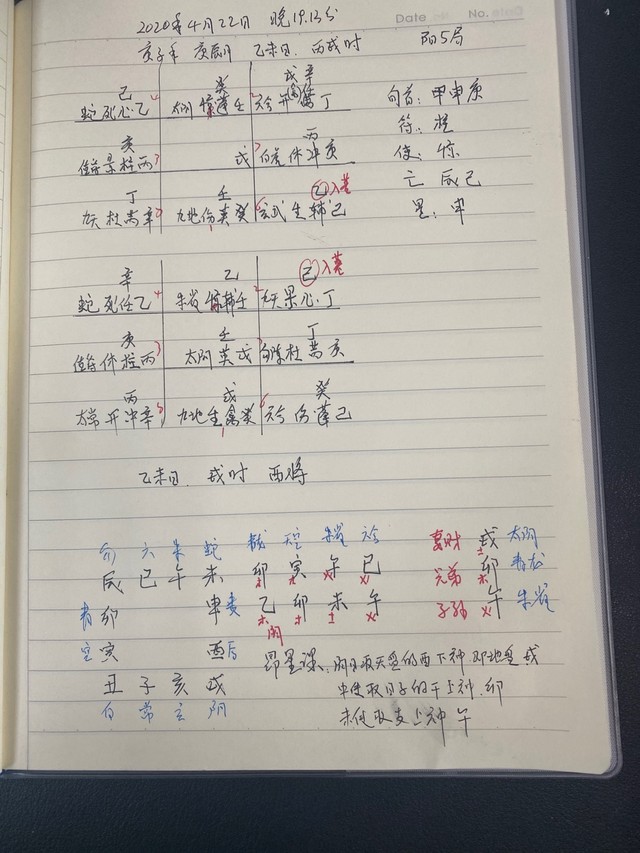 Date No.
2020年4月22日 晚19.13分
庚子年 庚辰月 乙未日 丙戌时 阳5局
己 癸 戊辛
蛇死心乙4 太阴惊蓬壬 六合开任丁
旬首：甲申庚
符：柱
丙
景柱丙3 戊 白虎休冲庚
使：惊
亡 辰己
丁 壬 乙入墓
九天杜芮辛 九地伤英癸 玄武生辅己
星：申
辛 乙 己入墓
蛇死任乙4 朱雀惊辅壬 九天景心丁
庚 壬 丁
休柱丙3 太阴英戊 勾陈杜芮庚
丙 戊 癸
太常开冲辛 九地生禽癸 六合伤蓬己
乙未日 戌时 酉将
勾 六 朱 蛇 空 朱雀 妻财 戌 太阴
辰 巳 午 未 卯 寅 午 巳 兄弟 卯 青龙
青 卯 申 贵 乙 卯 未 午 子孙 午 朱雀
空 寅 酉 后 阴
昴星课，阴日取天盘的酉下神，即地盘戌
丑 子 亥 戌 中传取日子的干上神，卯
白 常 玄 阴 末传取支上神 午